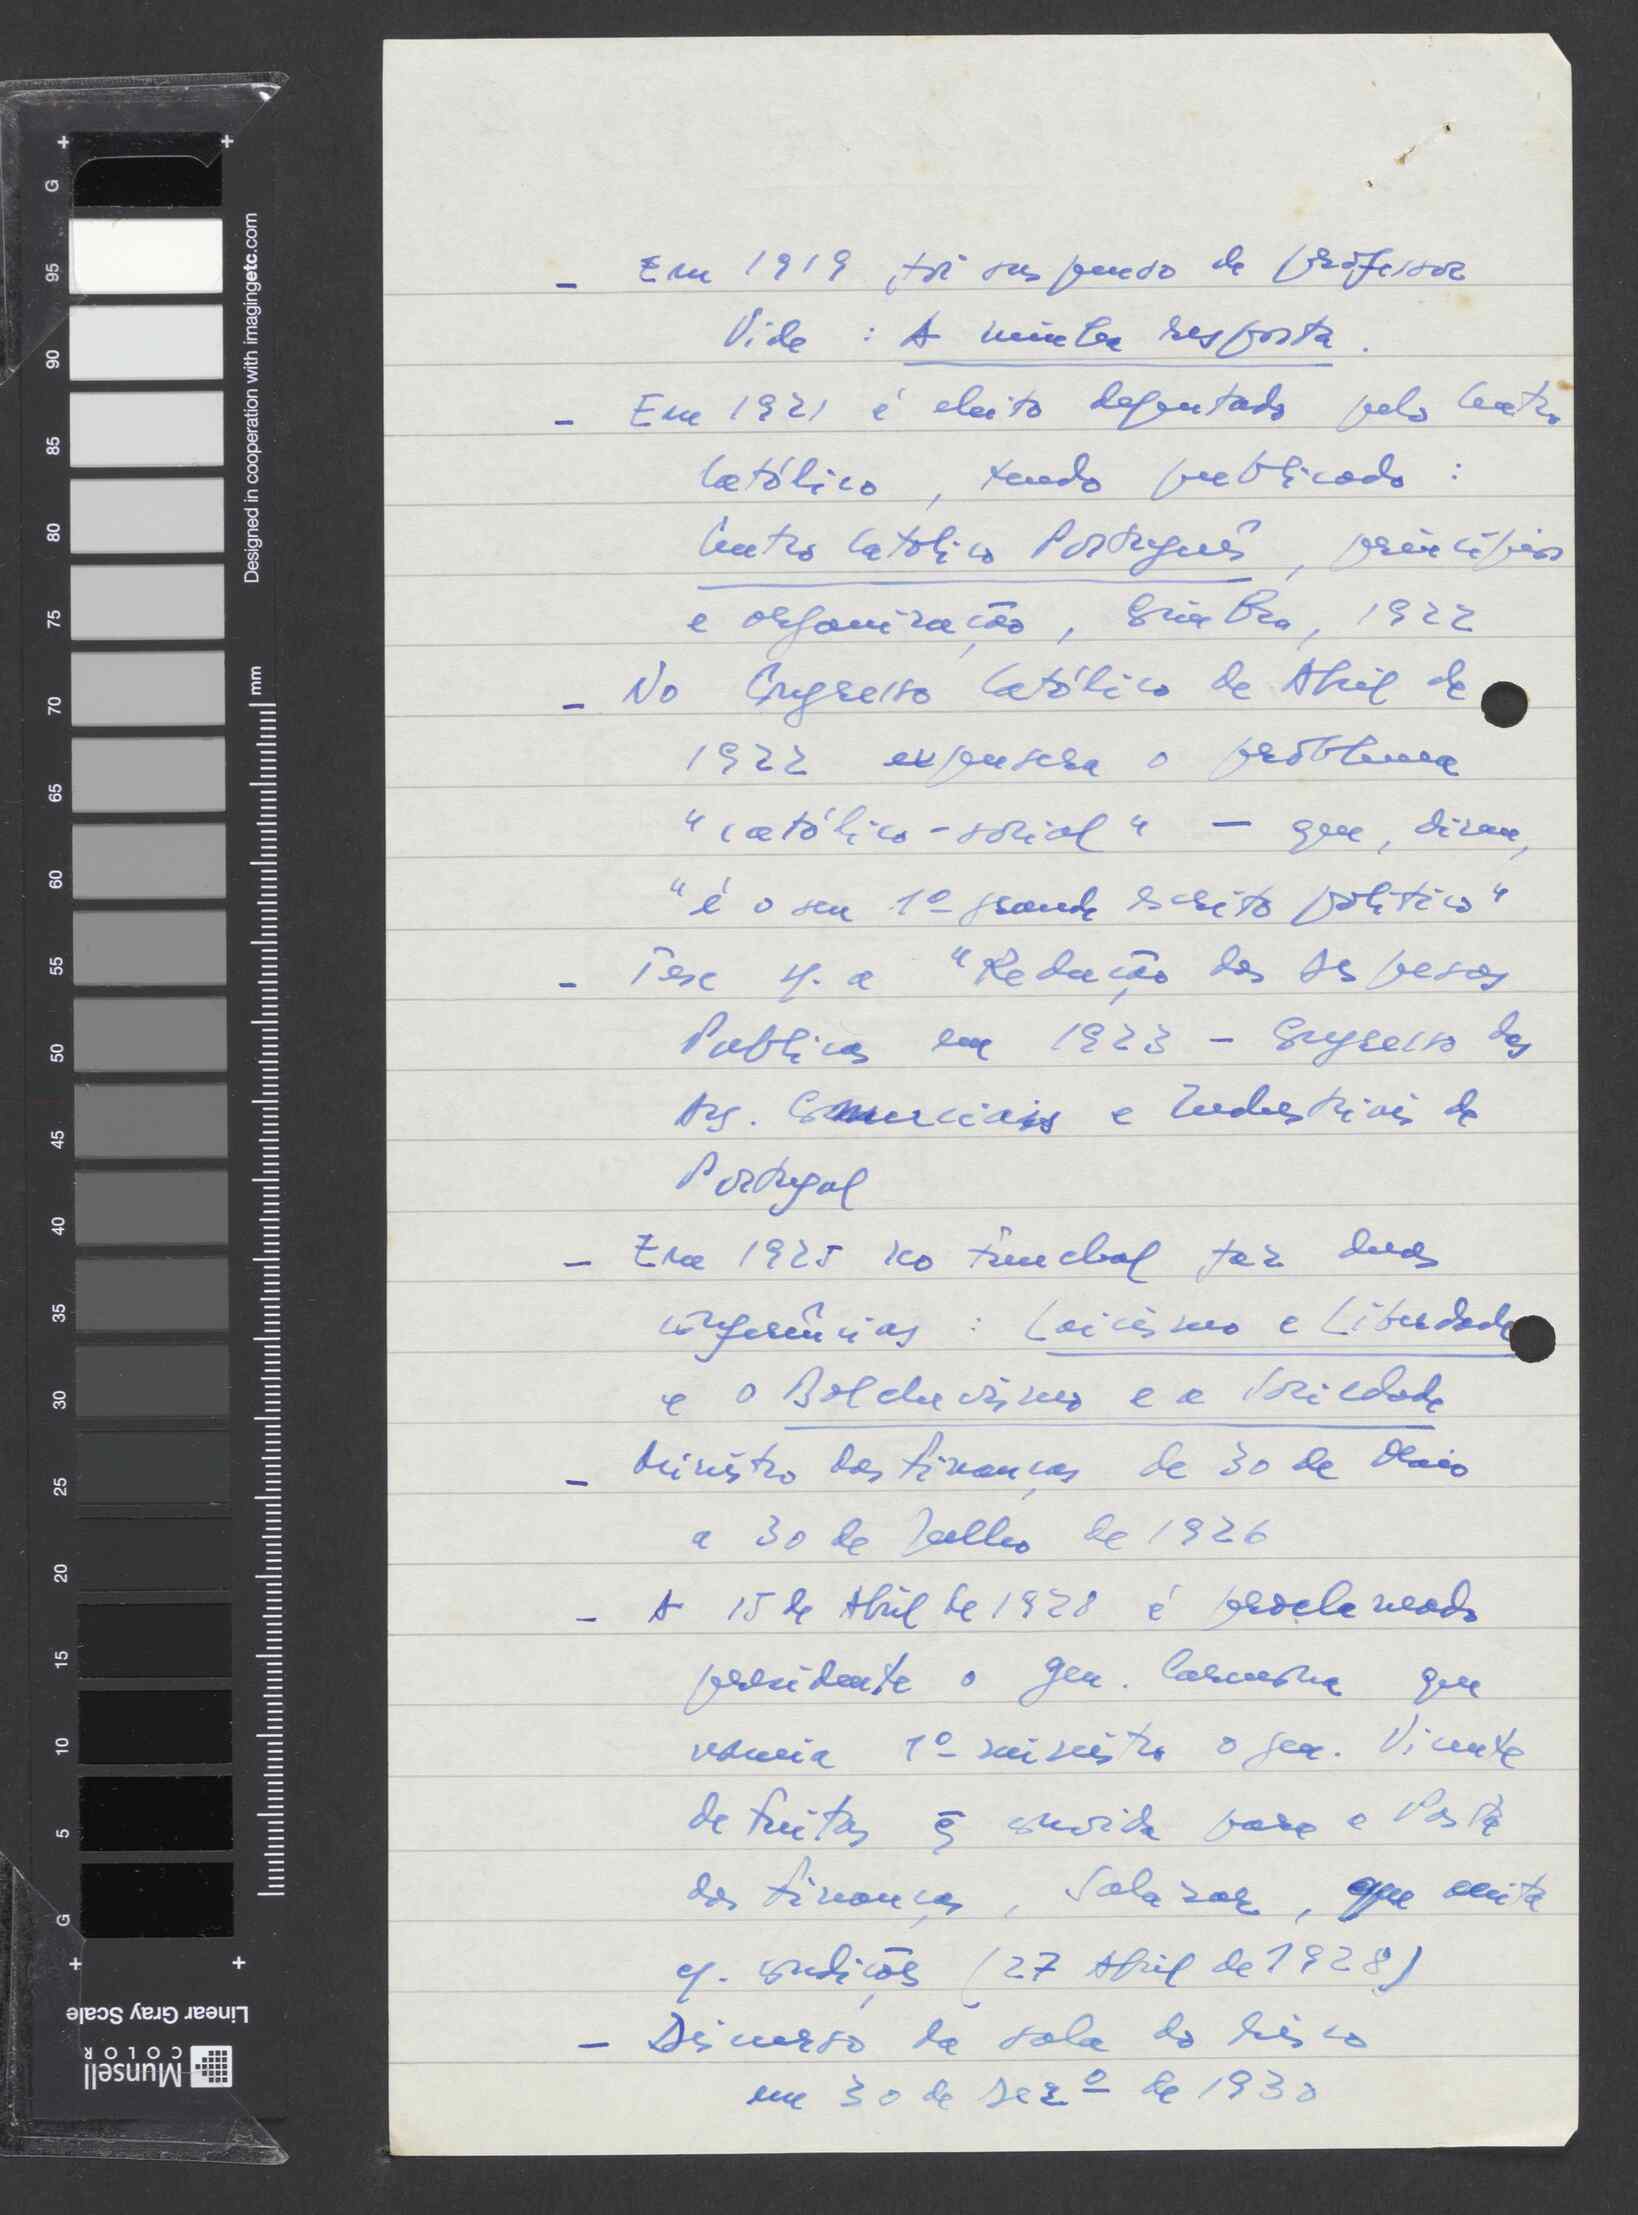 - Em 1919 foi suspenso de professor
Vide : A minha resposta.
- Em 1921 é eleito deputado pelo Centro
Católico, tendo publicado :
Centro Católico Português, princípios
e organização, Coimbra, 1922
- No Congresso Católico de Abril de
1922 expusera o problema
"católico-social" — que, dizem,
"é o seu 1º grande escrito político"
- Tese s/. a "Redução das despesas
Publicas em 1923 - Congresso das
As. Comerciais e Industriais de
Portugal
- Em 1925 no Funchal faz duas
conferências : Laicismo e Liberdade
e o Bolchevismo e a Sociedade
- Ministro das Finanças de 30 de Maio
a 30 de Julho de 1926
- A 15 de Abril de 1928 é proclamado
presidente o gen. Carmona que
nomeia 1º ministro o gen. Vicente
de Freitas q̃ convida para a Pasta
das Finanças, Salazar, que aceita
c/. condições (27 Abril de 1928)
- Discurso da sala do Risco
em 30 de Dezº de 1930
Designed in cooperation with imagingetc.com
mm
G 95 90 85 80 75 70 65 60 55 50 45 40 35 30 25 20 15 10 5 G
Linear Gray Scale
Munsell
COLOR